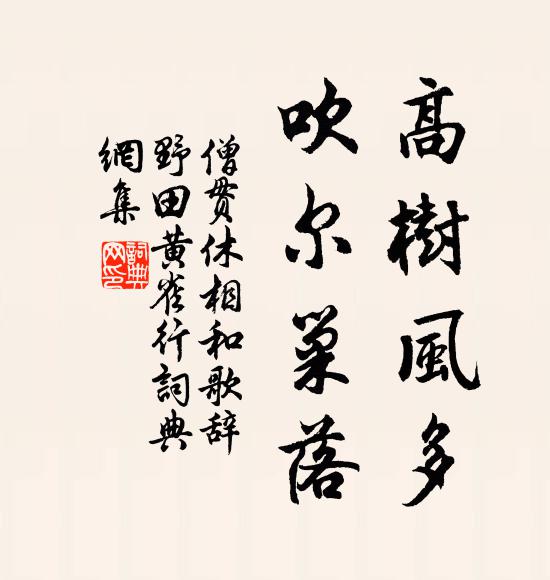 高樹風多
吹尔巢落
僧贯休相和歌辞
野田黄雀行詞典
網集
詞典
网印